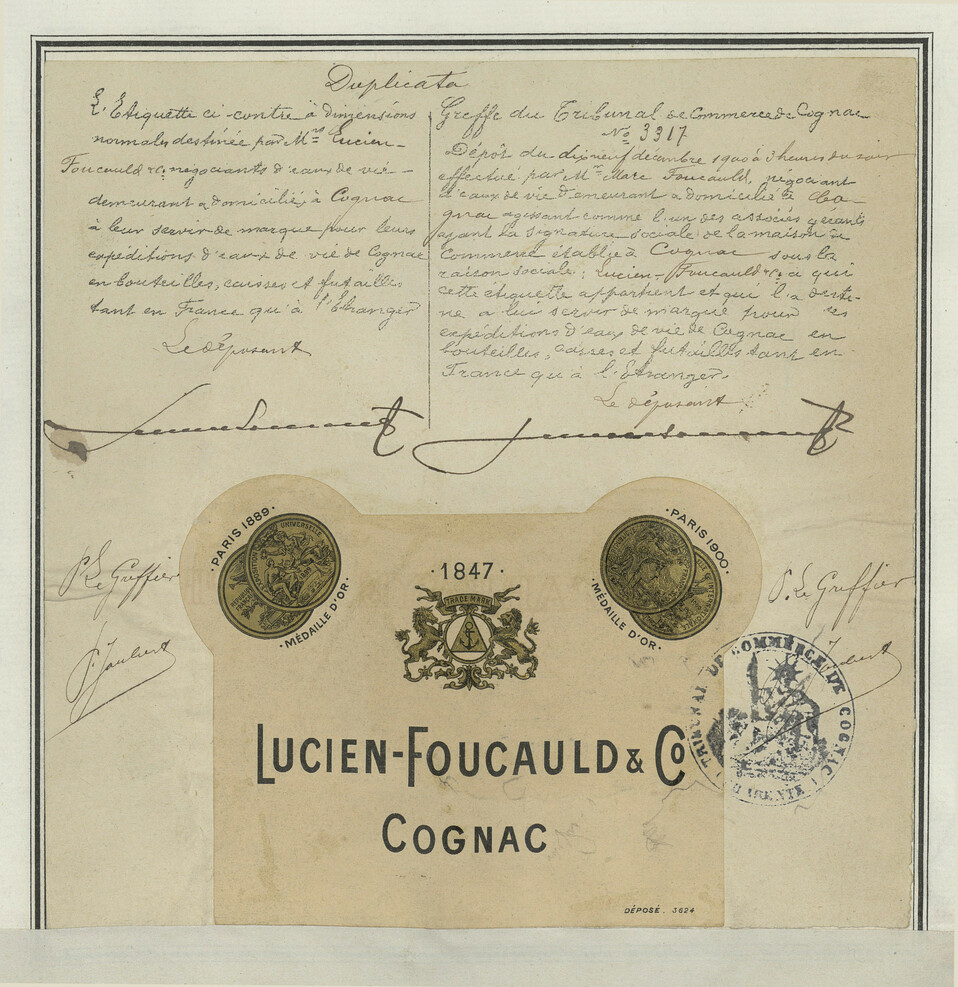 Duplicata
L'Etiquette ci-contre à dimensions
normales destinée par Mrs Lucien-
Foucauld & Co négociants d'eaux de vie
demeurant & domiciliés à Cognac
à leur servir de marque pour leurs
expéditions d'eaux de vie de Cognac
en bouteilles, caisses et futailles
tant en France qu'à l'Etranger
Le déposant
Greffe du Tribunal de Commerce de Cognac
No 3917
Dépôt du dix neuf décembre 1900 à 3 heures du soir
effectué par Mr Marc Foucauld, négociant
d'eaux de vie demeurant & domicilié à Co-
gnac agissant comme l'un des associés gérants
ayant la signature sociale de la maison de
Commerce établie à Cognac sous la
raison sociale; Lucien-Foucauld & Co à qui
cette étiquette appartient et qui l'a desti-
née à leur servir de marque pour ses
expéditions d'eaux de vie de Cognac en
bouteilles, caisses et futailles tant en
France qu'à l'Etranger
Le déposant
P. Le Greffier
P. Le Greffier
·PARIS 1889·
·MÉDAILLE D'OR·
·1847·
TRADE MARK
·PARIS 1900·
·MÉDAILLE D'OR·
LUCIEN-FOUCAULD & Co
COGNAC
TRIBUNAL DE COMMERCE DE COGNAC
CHARENTE
DÉPOSÉ. 3624